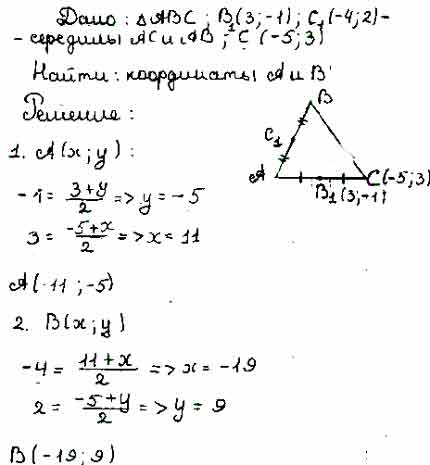 Дано: △ABC; B₁(3;-1); C₁(-4;2)-
- середины AC и AB; C (-5;3)
Найти: координаты A и B
Решение:
1. A(x;y):
-1 = (3+y)/2 => y = -5
3 = (-5+x)/2 => x = 11
A(11;-5)
2. B(x;y)
-4 = (11+x)/2 => x = -19
2 = (-5+y)/2 => y = 9
B(-19;9)
B
C₁
A
C(-5;3)
B₁(3;-1)